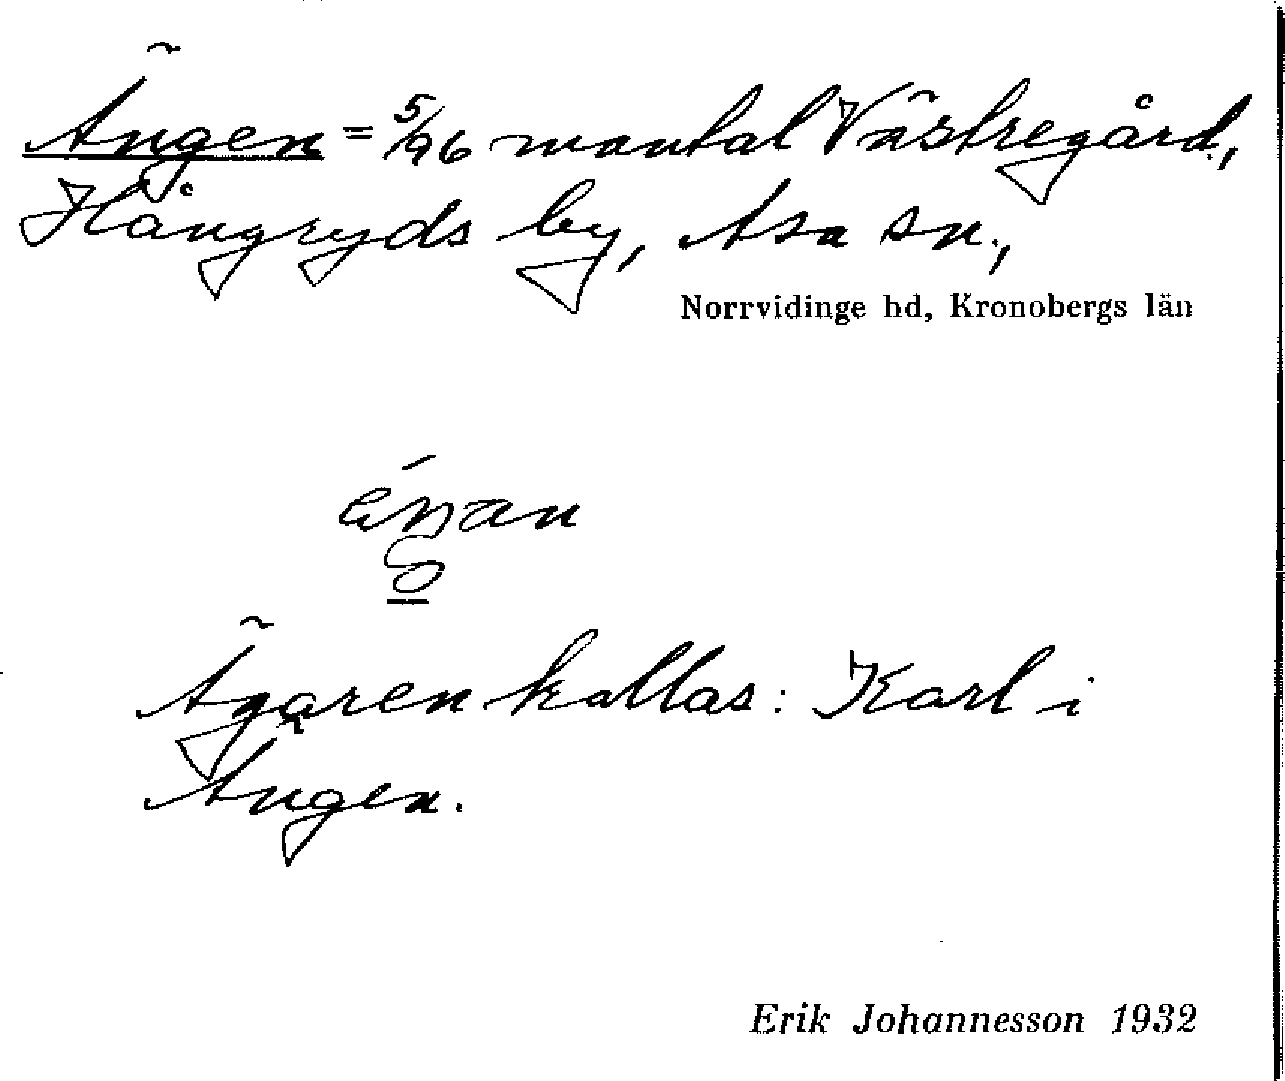 Ängen = 5/96 mantal Västregård,
Hångryds by, Asa sn.,
Norrvidinge hd, Kronobergs län
Ägaren kallas: Karl i
Ängen.
Erik Johannesson 1932